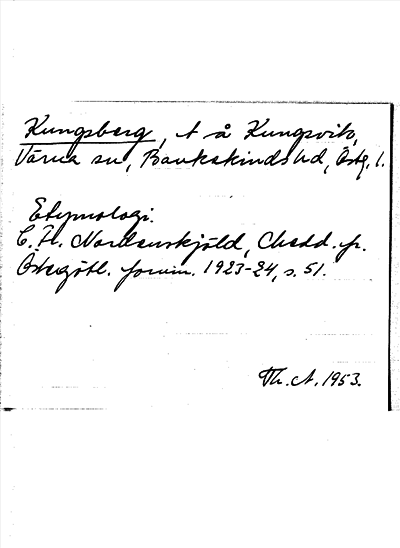 Kungsberg, t å Kungsvik,
Värna sn, Bankekinds hd, Östg. l.
Etymologi.
C. H. Nordenskjöld, Medd. fr.
Östergötl. fornm. 1923-24, s. 51.
Th. A. 1953.